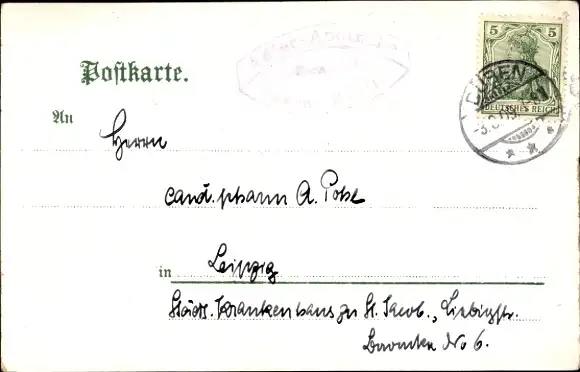 Postkarte.
5 5
DEUTSCHES REICH
DÜBEN
An
Herrn
cand. pharm A. Pohl
in Leipzig
Städt. Krankenhaus zu St. Jacob., Liebigstr.
Baracke No 6.